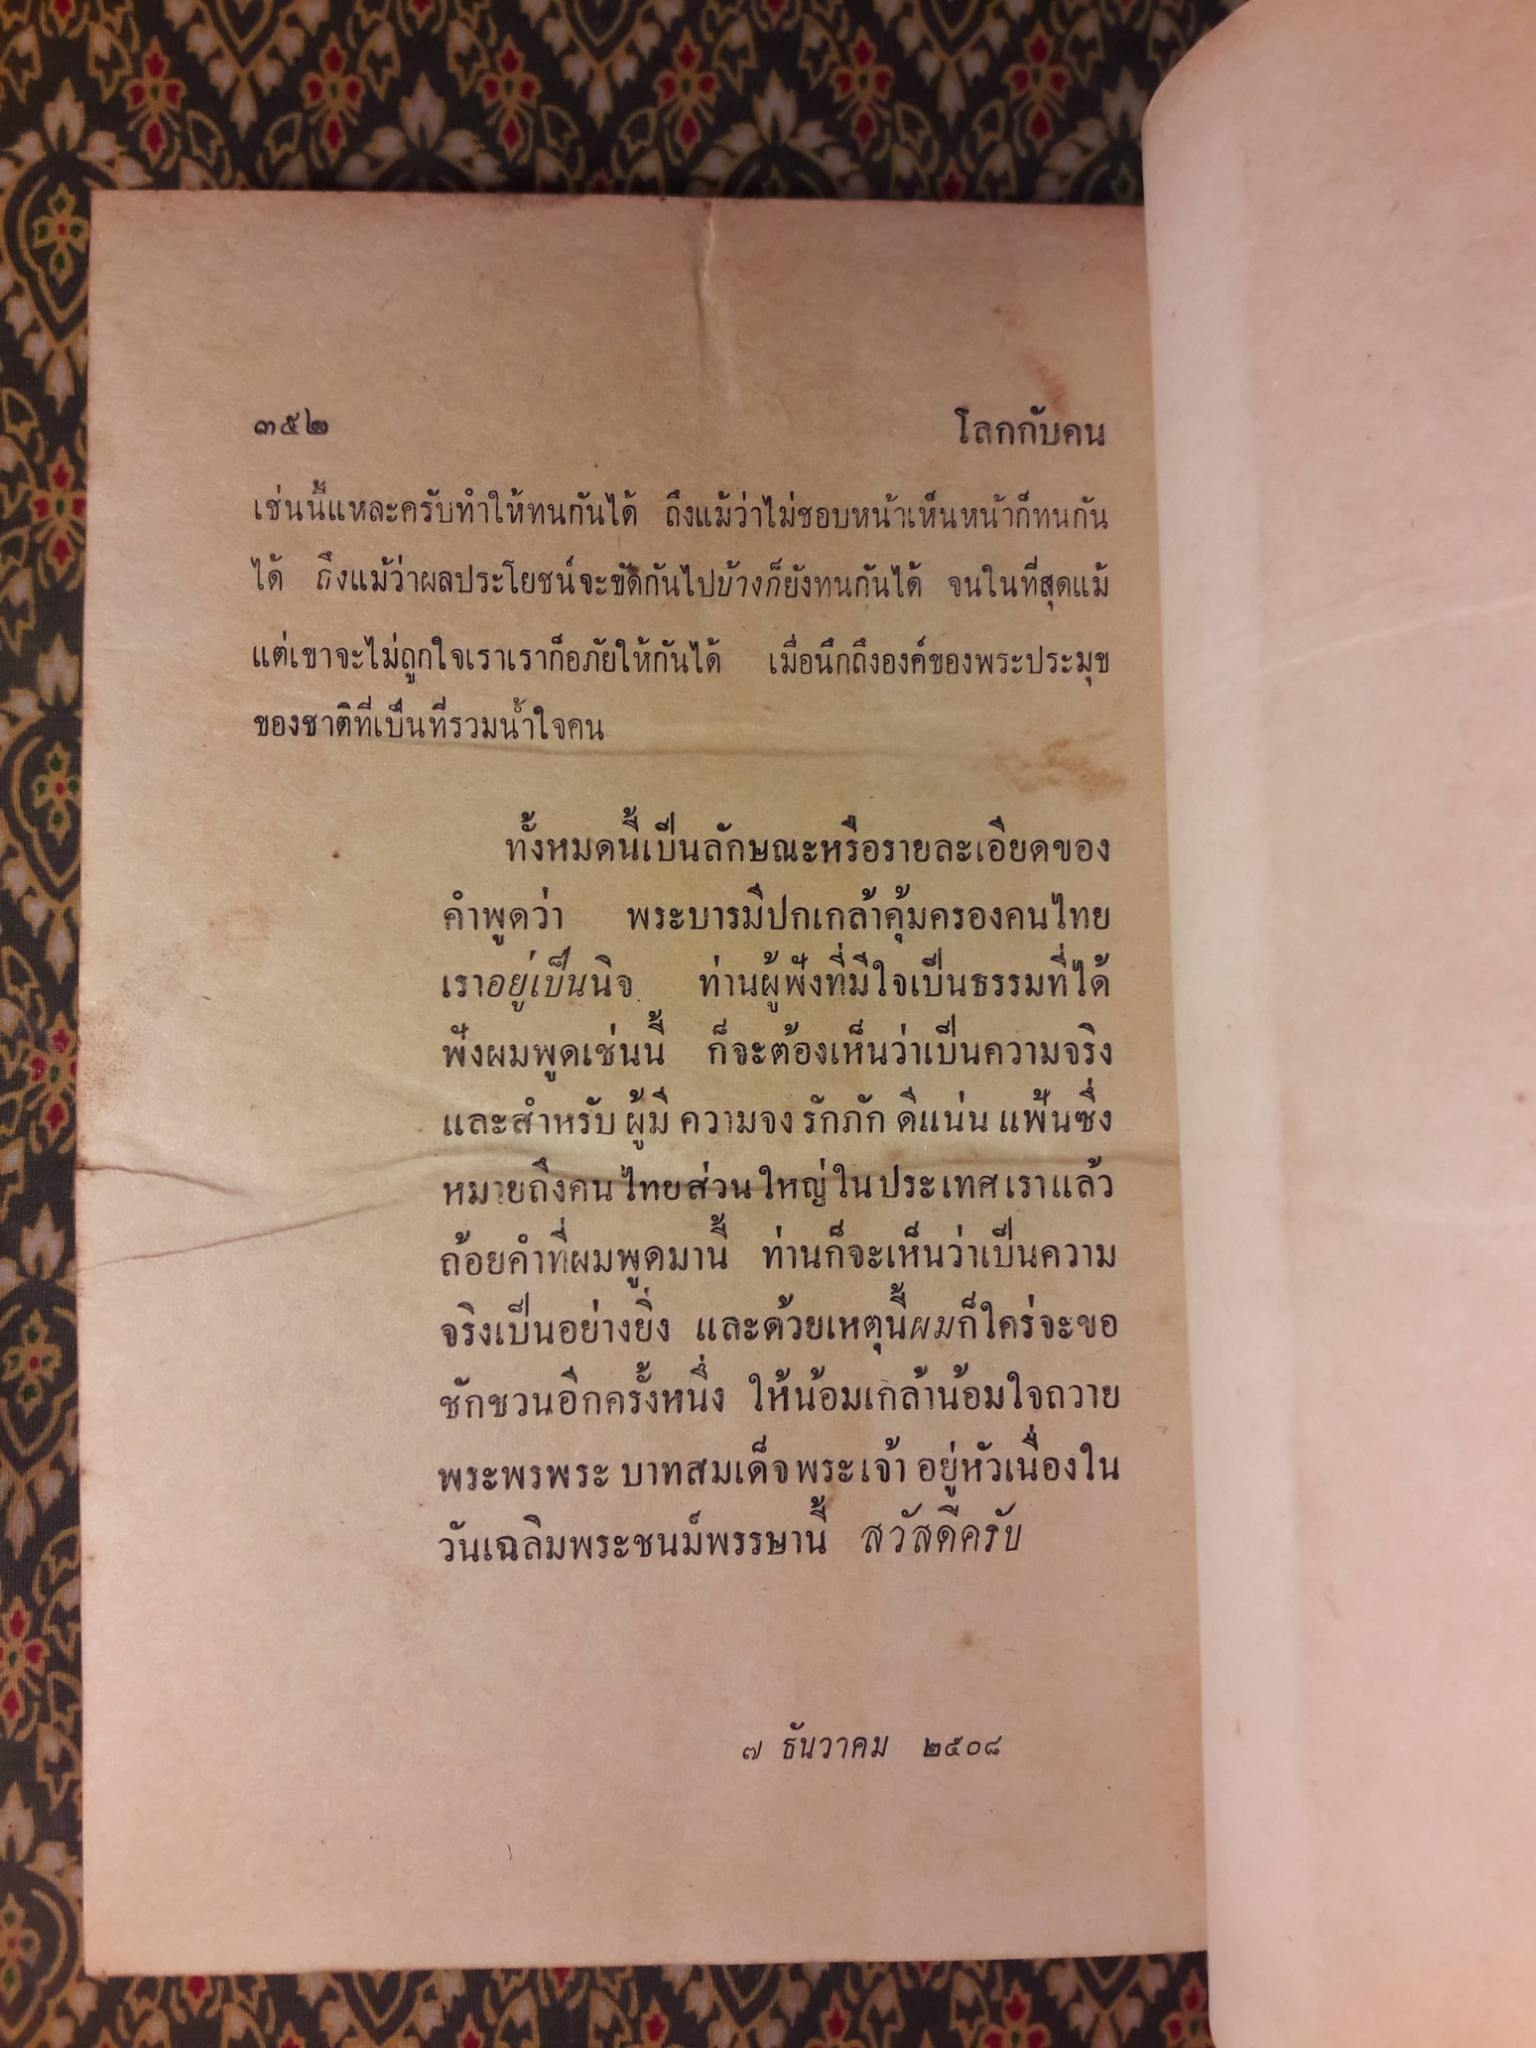 ๓๕๒ โลกกับคน
เช่นนี้แหละครับทำให้ทนกันได้ ถึงแม้ว่าไม่ชอบหน้าเห็นหน้าก็ทนกัน
ได้ ถึงแม้ว่าผลประโยชน์จะขัดกันไปบ้างก็ยังทนกันได้ จนในที่สุดแม้
แต่เขาจะไม่ถูกใจเราเราก็อภัยให้กันได้ เมื่อนึกถึงองค์ของพระประมุข
ของชาติที่เป็นที่รวมน้ำใจคน
ทั้งหมดนี้เป็นลักษณะหรือรายละเอียดของ
คำพูดว่า พระบารมีปกเกล้าคุ้มครองคนไทย
เราอยู่เป็นนิจ ท่านผู้ฟังที่มีใจเป็นธรรมที่ได้
ฟังผมพูดเช่นนี้ ก็จะต้องเห็นว่าเป็นความจริง
และสำหรับ ผู้มี ความจง รักภัก ดีแน่น แฟ้นซึ่ง
หมายถึงคน ไทยส่วน ใหญ่ ใน ประเทศ เราแล้ว
ถ้อยคำที่ผมพูดมานี้ ท่านก็จะเห็นว่าเป็นความ
จริงเป็นอย่างยิ่ง และด้วยเหตุนี้ผมก็ใคร่จะขอ
ชักชวนอีกครั้งหนึ่ง ให้น้อมเกล้าน้อมใจถวาย
พระพรพระ บาทสมเด็จพระเจ้า อยู่หัวเนื่องใน
วันเฉลิมพระชนม์พรรษานี้ สวัสดีครับ
๗ ธันวาคม ๒๕๐๘